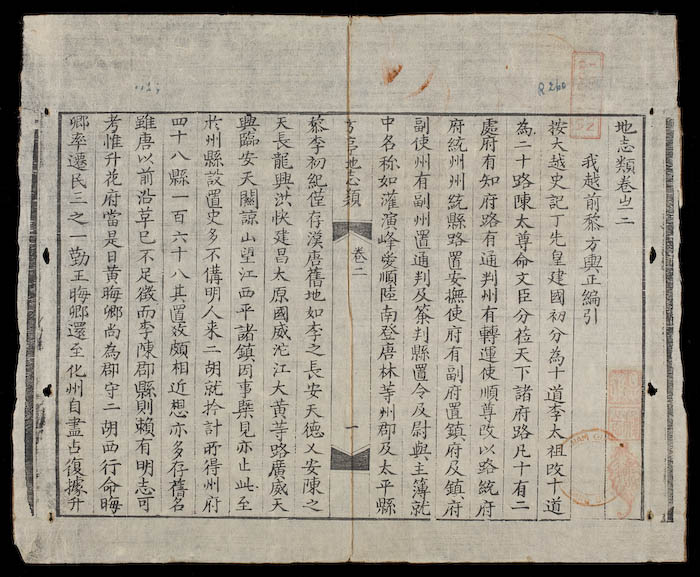 地志類卷之二
我越前黎方輿正編引
按大越史記丁先皇建國初分為十道李太祖改十道
為二十路陳太尊命文臣分莅天下諸府路凡十有二
處府有知府路有通判州有轉運使順尊改以路統府
府統州州統縣路置安撫使府有副府置鎮府及鎮府
副使州有副州置通判及簽判縣置令及尉與主簿就
中名称如灌演峰愛順陸南登唐林等州郡及太平縣
方亭地志類 卷二 一
黎李初紀僅存漢唐舊地如李之長安天德乂安陳之
天長龍興洪快建昌太原國威沱江大黃等路廣威天
興臨安天關諒山望江西平諸鎮因事槩見亦止此至
於州縣設置史多不備明人来二胡就拾計所得州府
四十八縣一百六十八其置攺頗相近想亦多存舊名
雖唐以前沿革已不足徵而李陳郡縣則賴有明志可
考惟升花府當是日黃晦卿尚為郡守二胡西行命晦
卿率遷民三之一勤王晦卿還至化州自盡占復據升
R260